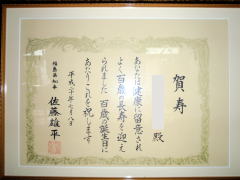 賀寿
殿
あなたは健康に留意され
よく百歳の長寿を迎え
られました 百歳の誕生日に
あたりこれを祝します
平成二十年七月八日
福島県知事
佐藤雄平